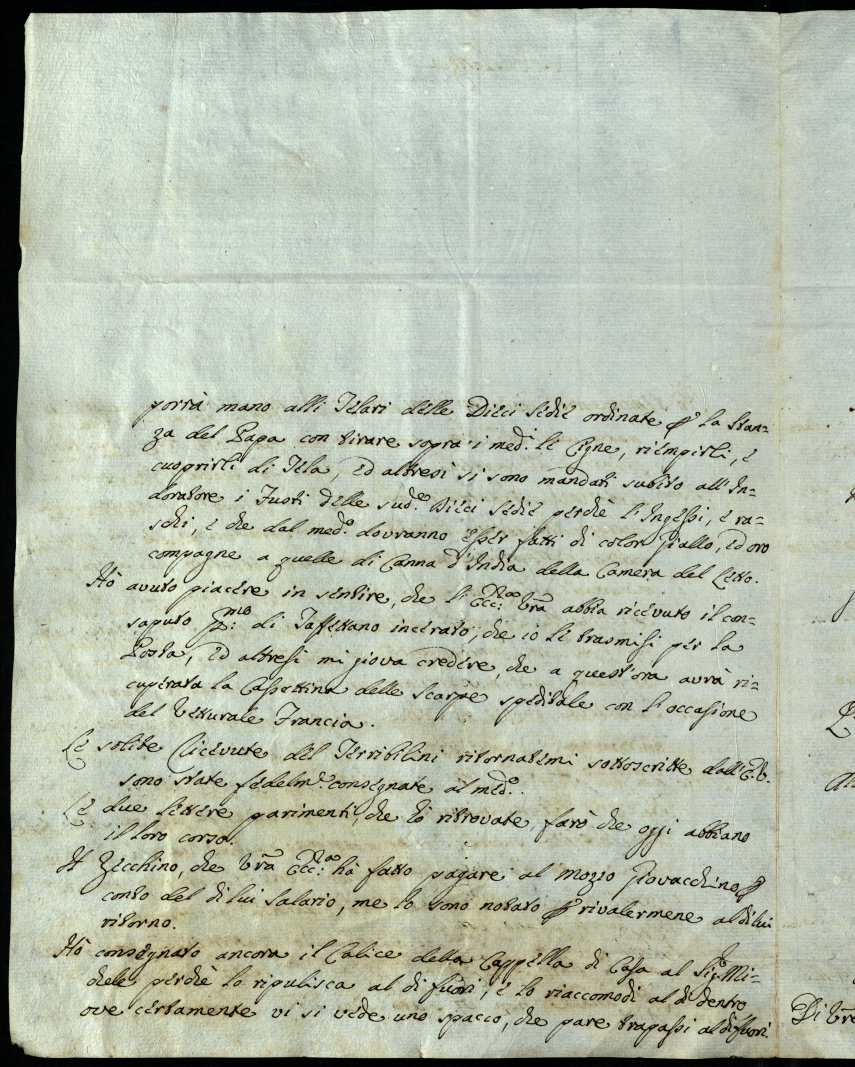 porrà mano alli Telari delle Dieci Sedie ordinate p la Stan=
za del Papa con tirare sopra i med.i le Cigne, riempirli, e
cuoprirli di Tela, ed altresì si sono mandati subito all'In=
doratore i Fusti delle sud.e Dieci Sedie perchè l'Ingessi, e ra=
schi, e che dal med.o dovranno esser fatti di color giallo, ed oro
compagne a quelle di Canna d'India della Camera del Letto.
Hò avuto piacere in sentire, che l'Ecc:za Vrã abbia ricevuto il con=
saputo di Taffettano incerato, che io le trasmisi per la
Posta, ed altresì mi giova credere, che a quest'ora avrà ri=
cuperata la Cassettina delle Scarpe speditale con l'occasione
del Vetturale Francia.
Le solite Ricevute del Terribilini ritornatemi sottoscritte dall'E.V.
sono state fedelm.e consegnate al med.o.
Le due lettere parimenti, che hò ritrovate, farò che oggi abbiano
il loro corso.
Il Zecchino, che Vrã Ecc:za hà fatto pagare al mozzo Giovacchino p
conto del di lui Salario, me lo sono notato p rivalermene al di lui
ritorno.
Hò consegnato ancora il Calice della Cappella di Casa al Sig.r Mi=
chele perchè lo ripulisca al di fuori, e lo riaccomodi al di dentro
ove certamente vi si vede uno spacco, che pare trapassi al di fuori.
Di Vrã